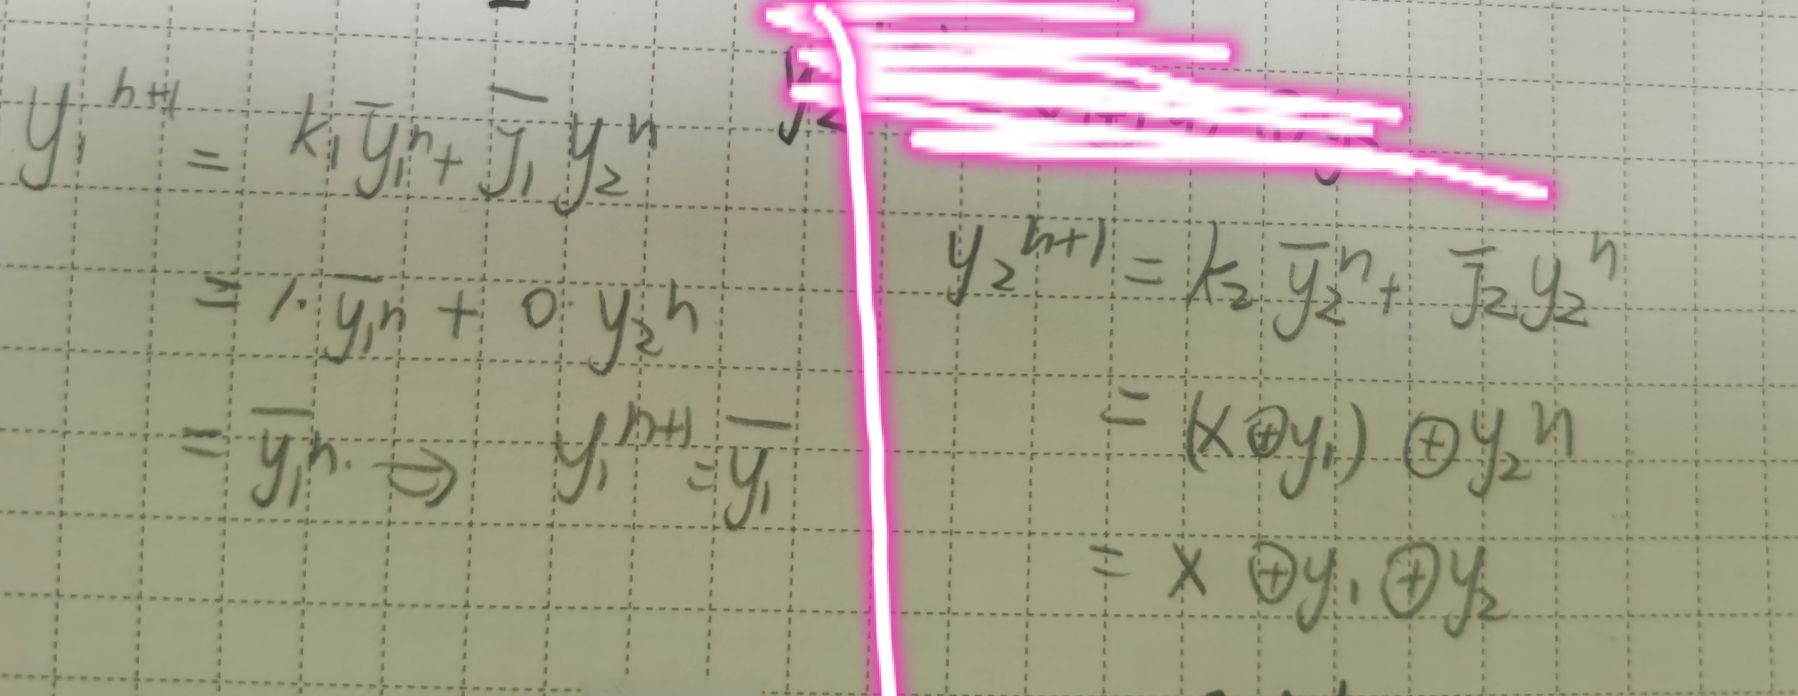 y₁ⁿ⁺¹ = k₁y̅₁ⁿ + J̅₁ y₂ⁿ
= 1·y̅₁ⁿ + 0·y₂ⁿ
= y̅₁ⁿ. ⇒ y₁ⁿ⁺¹ = y̅₁
y₂ⁿ⁺¹ = k₂ y̅₂ⁿ + J̅₂ y₂ⁿ
= (x ⊕ y₁) ⊕ y₂ⁿ
= x ⊕ y₁ ⊕ y₂